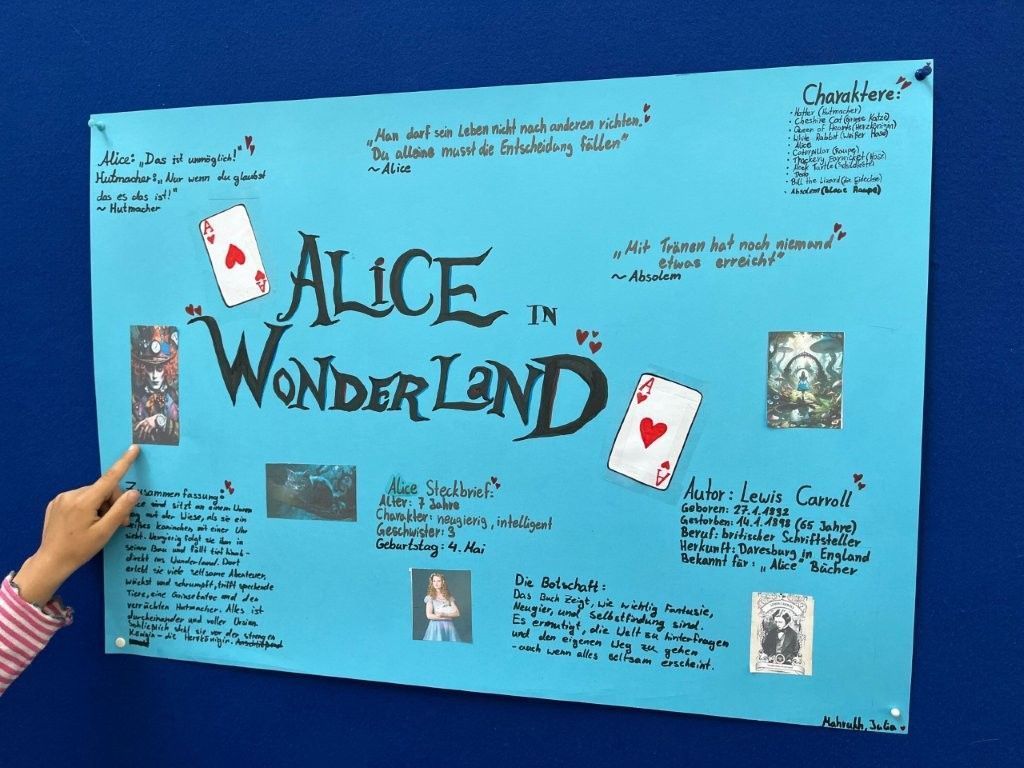 Alice: „Das ist unmöglich!"
Hutmacher: „Nur wenn du glaubst
das es das ist!"
~ Hutmacher
„Man darf sein Leben nicht nach anderen richten.
Du alleine musst die Entscheidung fällen"
~ Alice
Charaktere:
• Hatter (Hutmacher)
• Cheshire Cat (Grinse Katze)
• Queen of Hearts (Herzkönigin)
• White Rabbit (Weißer Hase)
• Alice
• Caterpillar (Raupe)
• Thackery Earwicket (Hase)
• Mock Turtle (Schildkröte)
• Dodo
• Bill the Lizard (die Eidechse)
• Absolem (blaue Raupe)
„Mit Tränen hat noch niemand
etwas erreicht"
~ Absolem
A
A
ALiCE IN
WONDERLaND
A
A
Zusammenfassung:
sind sitzt an einem
auf der Wiese, als sie ein
kaninchen mit einer Uhr
sieht. Neugierig folgt sie ihm in
seinen Bau und fällt tief hinab -
direkt ins Wunderland. Dort
erlebt sie viele seltsame Abenteuer,
wächst und schrumpft, trifft sprechende
Tiere, eine Grinsekatze und den
verrückten Hutmacher. Alles ist
durcheinander und voller Unsinn.
Schließlich steht sie vor der strengen
Königin - die Herzkönigin.
Alice Steckbrief:
Alter: 7 Jahre
Charakter: neugierig, intelligent
Geschwister: 3
Geburtstag: 4. Mai
Die Botschaft:
Das Buch zeigt, wie wichtig Fantasie,
Neugier, und Selbstfindung sind.
Es ermutigt, die Welt zu hinterfragen
und den eigenen Weg zu gehen
- auch wenn alles seltsam erscheint.
Autor: Lewis Carroll
Geboren: 27.1.1832
Gestorben: 14.1.1898 (65 Jahre)
Beruf: britischer Schriftsteller
Herkunft: Daresburg in England
Bekannt für: „Alice" Bücher
Mahrukh, Julia